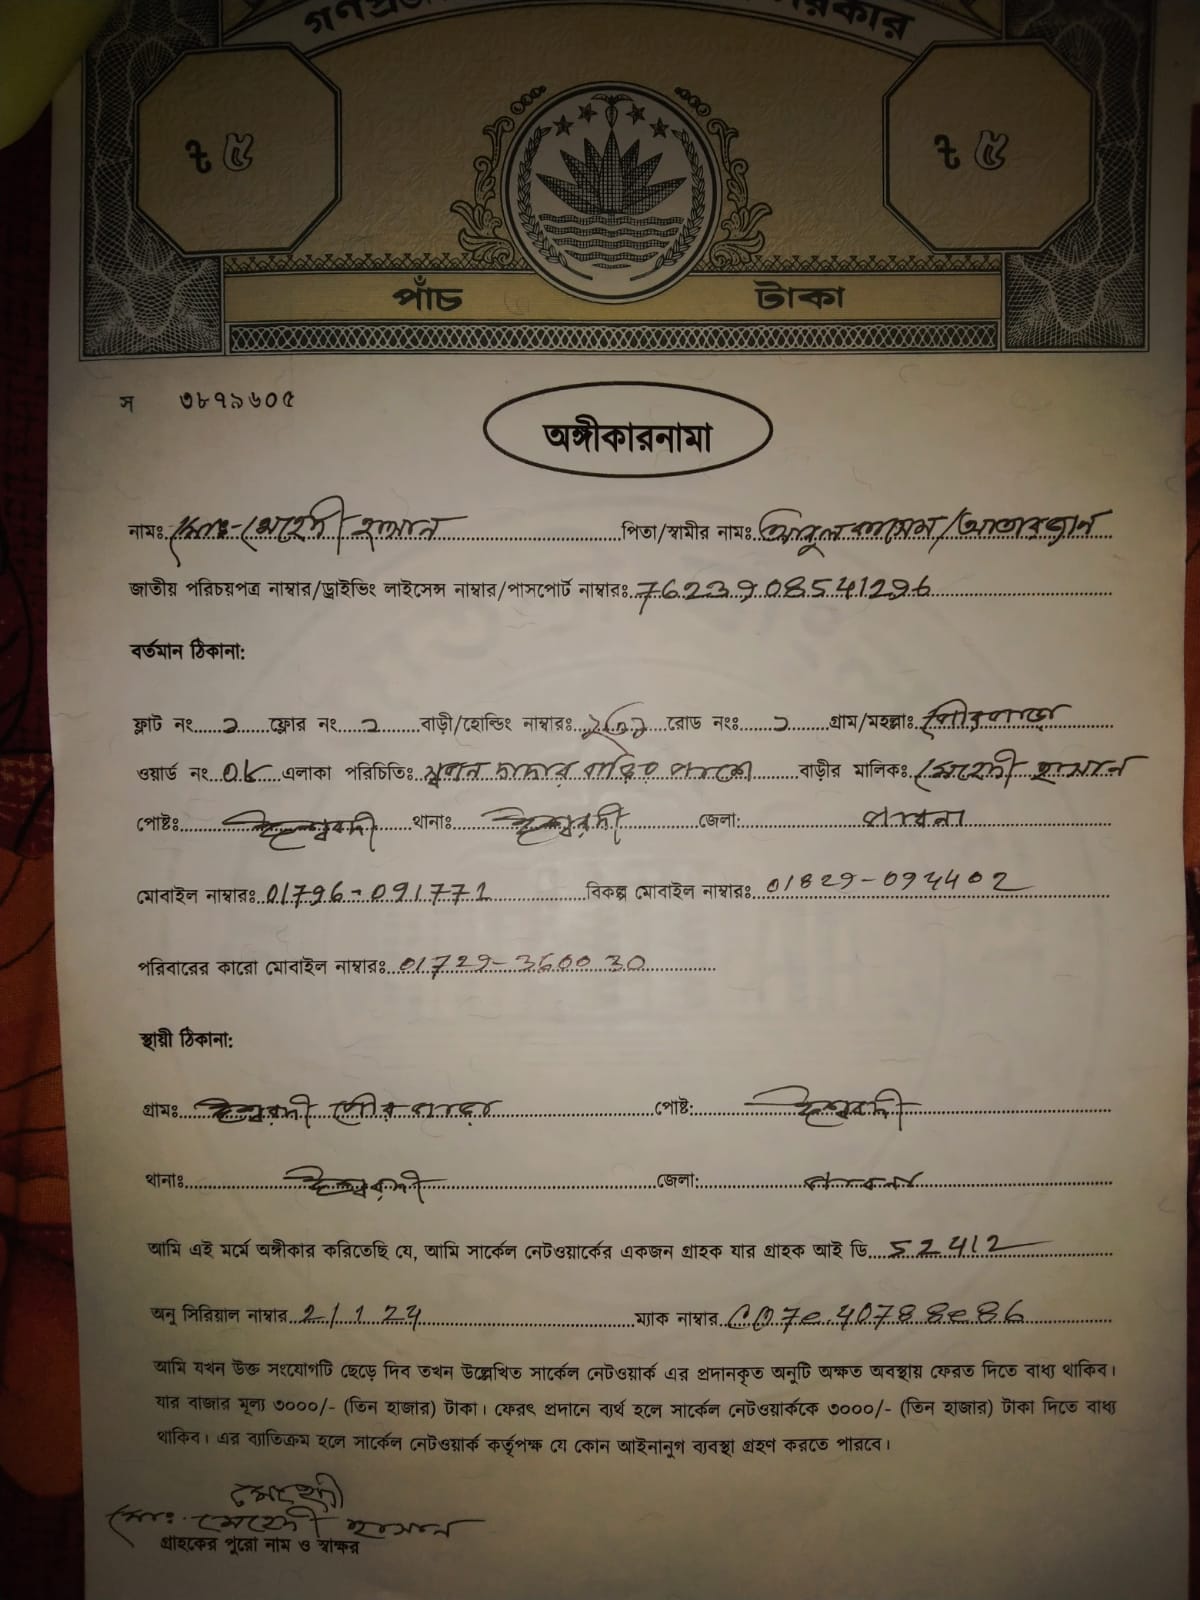 ৳ ৫ ৳ ৫
পাঁচ টাকা
স ৩৮৭৯৬০৫
অঙ্গীকারনামা
নামঃ মোঃ-মেহেদী হাসান পিতা/স্বামীর নামঃ আবুল কাসেম/আতারজান
জাতীয় পরিচয়পত্র নাম্বার/ড্রাইভিং লাইসেন্স নাম্বার/পাসপোর্ট নাম্বারঃ 7623908541296
বর্তমান ঠিকানা:
ফ্লাট নং ১ ফ্লোর নং ১ বাড়ী/হোল্ডিং নাম্বারঃ রোড নংঃ ১ গ্রাম/মহল্লাঃ পৌরপাড়া
ওয়ার্ড নং 08 এলাকা পরিচিতিঃ দাদার বাড়ির পাশে বাড়ীর মালিকঃ মেহেদী হাসান
পোষ্টঃ ঈশ্বরদী থানাঃ ঈশ্বরদী জেলা: পাবনা
মোবাইল নাম্বারঃ 01796-091771 বিকল্প মোবাইল নাম্বারঃ 01829-094402
পরিবারের কারো মোবাইল নাম্বারঃ 01729-360030
স্থায়ী ঠিকানা:
গ্রামঃ ঈশ্বরদী পৌর পাড়া পোষ্ট: ঈশ্বরদী
থানাঃ ঈশ্বরদী জেলা: পাবনা
আমি এই মর্মে অঙ্গীকার করিতেছি যে, আমি সার্কেল নেটওয়ার্কের একজন গ্রাহক যার গ্রাহক আই ডি 52412
অনু সিরিয়াল নাম্বার 2/1 24 ম্যাক নাম্বার CO7e.40788e86
আমি যখন উক্ত সংযোগটি ছেড়ে দিব তখন উল্লেখিত সার্কেল নেটওয়ার্ক এর প্রদানকৃত অনুটি অক্ষত অবস্থায় ফেরত দিতে বাধ্য থাকিব।
যার বাজার মূল্য ৩০০০/- (তিন হাজার) টাকা। ফেরৎ প্রদানে ব্যর্থ হলে সার্কেল নেটওয়ার্ককে ৩০০০/- (তিন হাজার) টাকা দিতে বাধ্য
থাকিব। এর ব্যতিক্রম হলে সার্কেল নেটওয়ার্ক কর্তৃপক্ষ যে কোন আইনানুগ ব্যবস্থা গ্রহণ করতে পারবে।
মেহেদী
মোঃ মেহেদী হাসান
গ্রাহকের পুরো নাম ও স্বাক্ষর